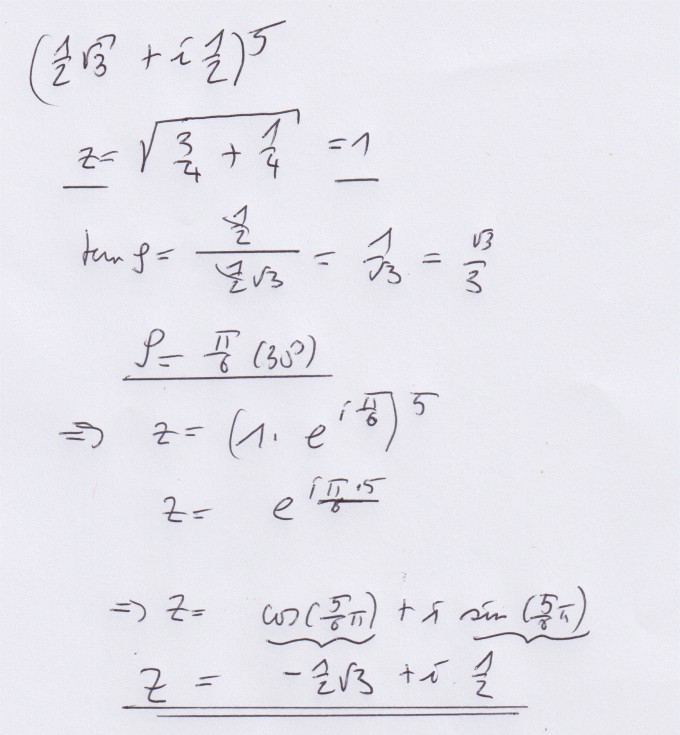 (1/2 √3 + i 1/2)^5
z = √(3/4 + 1/4) = 1
tan φ = (1/2)/(1/2 √3) = 1/√3 = √3/3
φ = π/6 (30°)
⇒ z = (1 · e^(i π/6))^5
z = e^(i π·5/6)
⇒ z = cos(5/6 π) + i sin(5/6 π)
z = -1/2 √3 + i 1/2